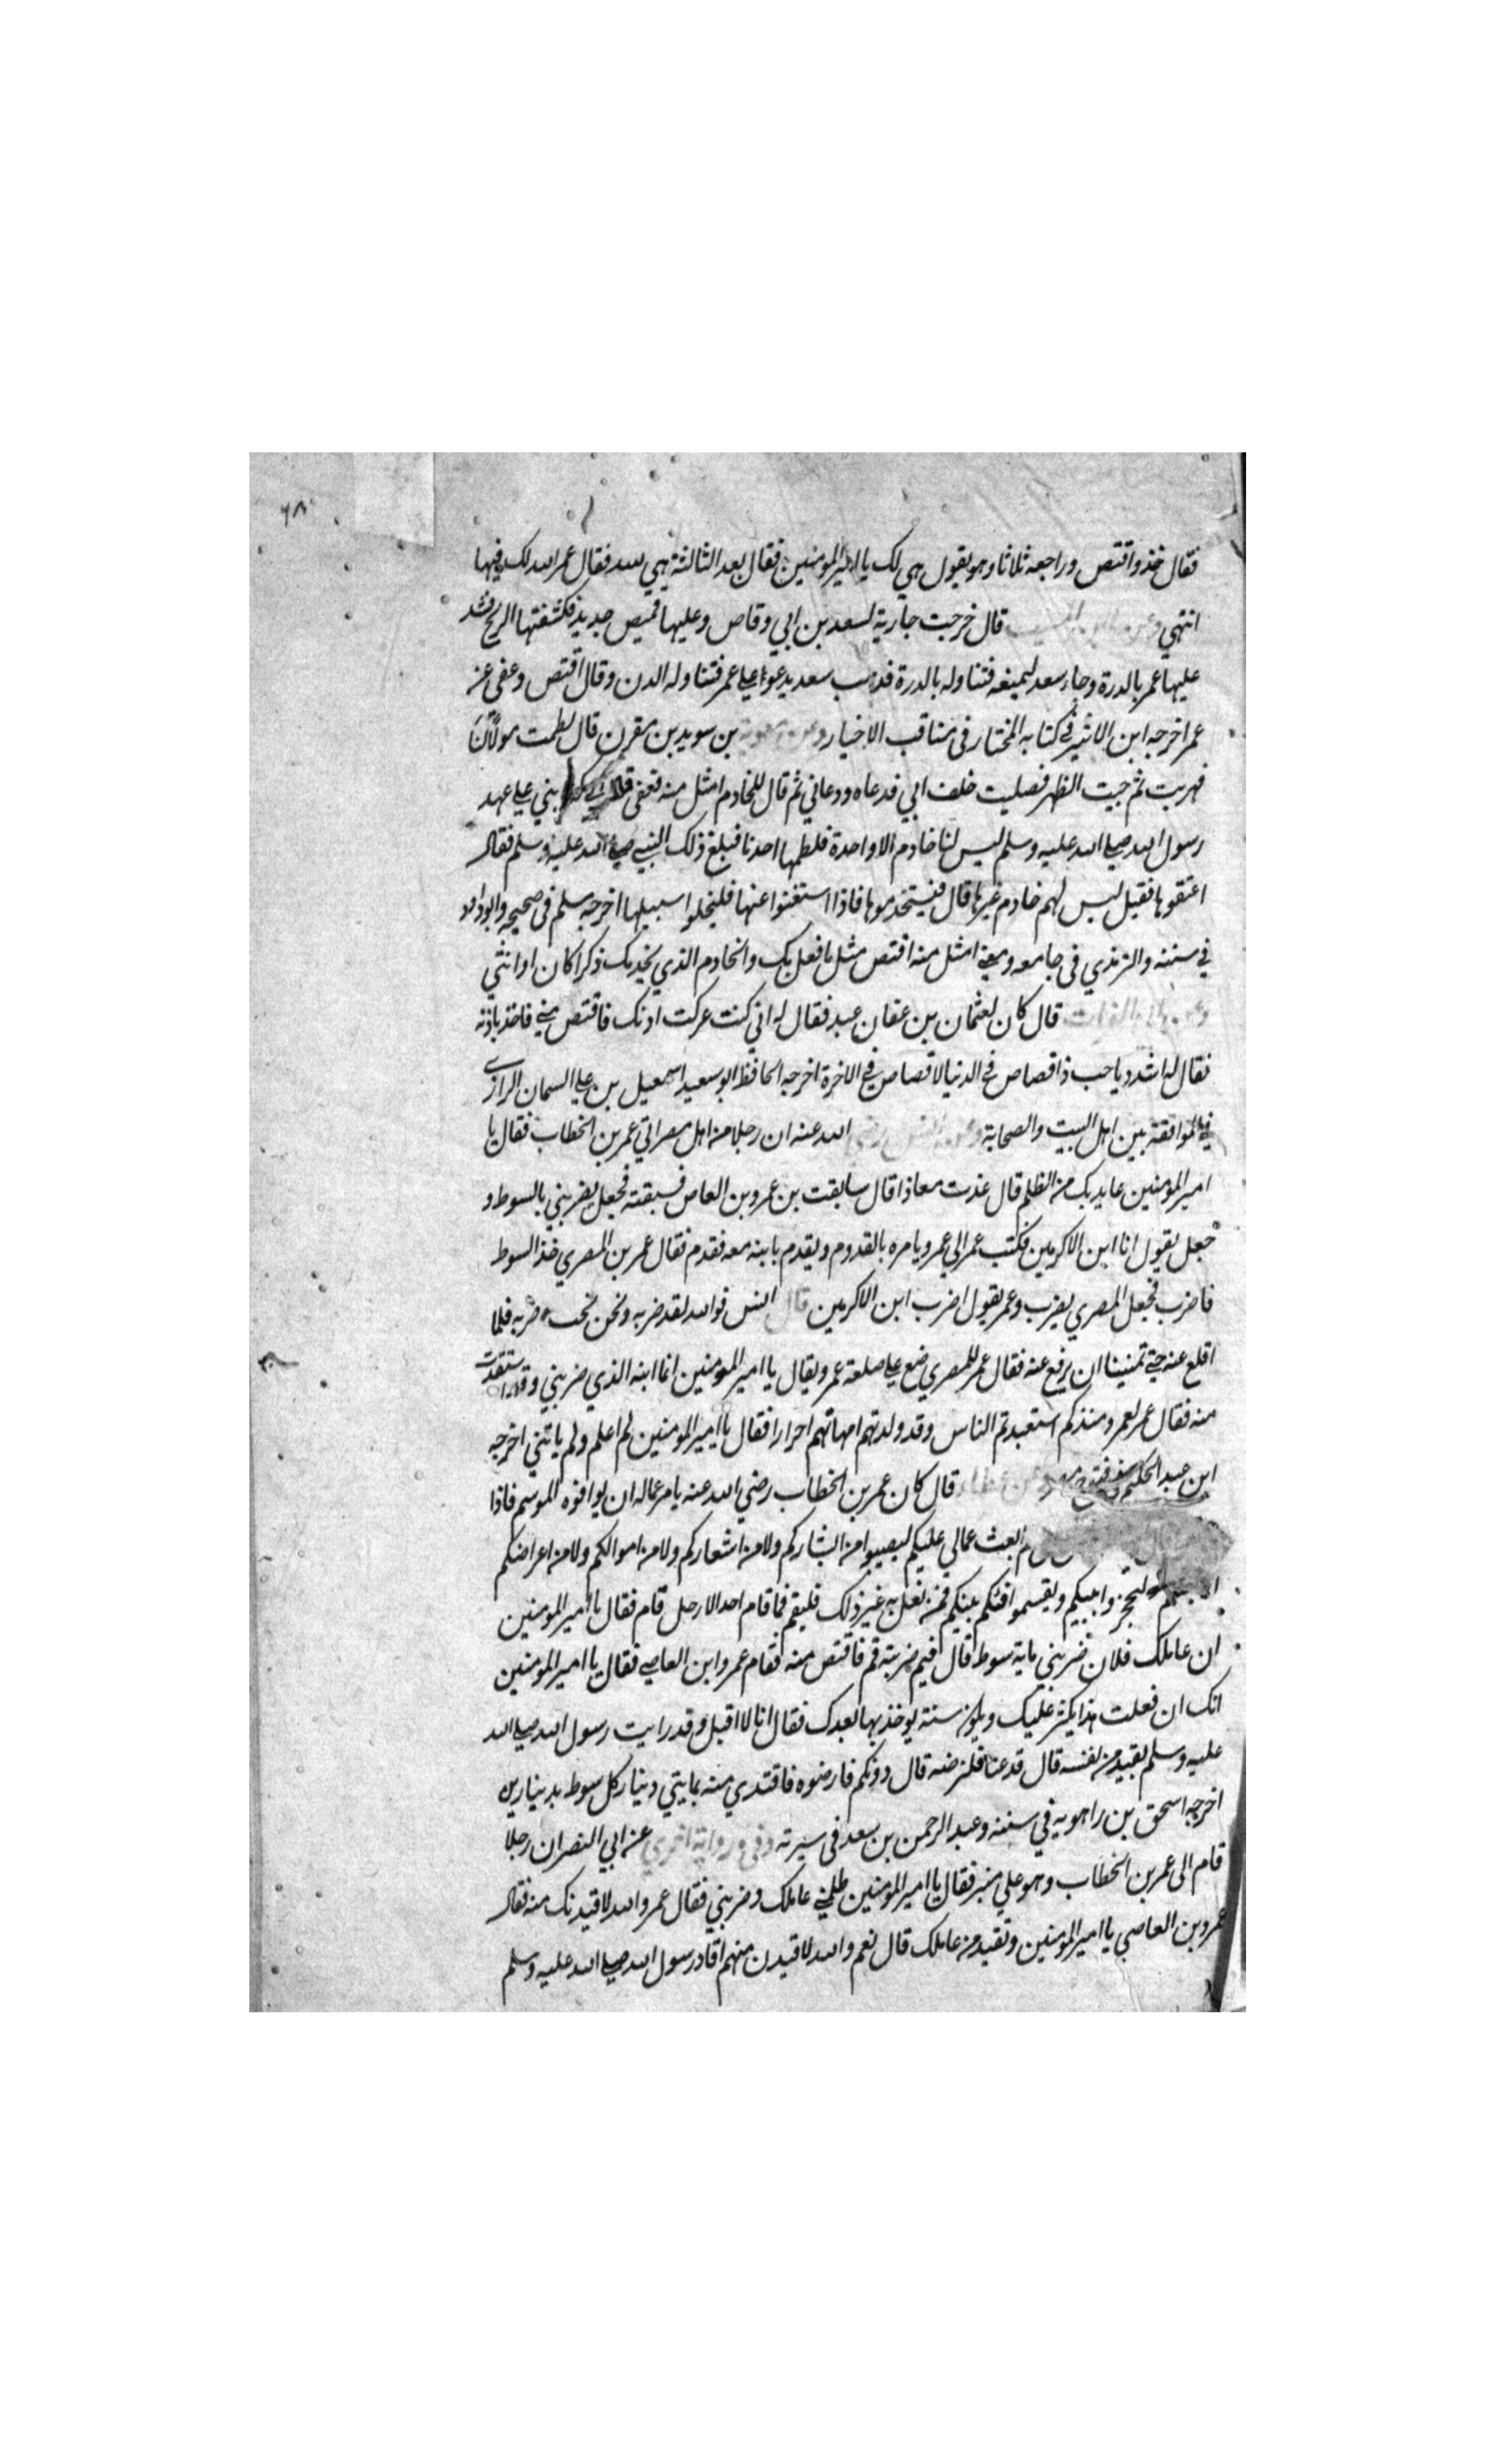 ٦٨
فقال خذ واقتص وراجعه ثلاثا وهو يقول هي لك يا امير المومنين فقال بعد الثالثة هي لله فقال عمر الله لك فيها
انتهي وعن ابن المسيب قال خرجت جارية لسعد بن ابي وقاص وعليها قميص جديد فكشفتها الريح فشد
عليها عمر بالدرة وجاء سعد ليمنعه فتناوله بالدرة فذهب سعد يدعوا علي عمر فتناوله الدن وقال اقتص وعفى عن
عمر اخرجه ابن الاثير في كتابه المختار في مناقب الاخيار وعن معوية بن سويد بن مقرن قال لطمت مولاً لنا
فهربت ثم جيت الظهر فصليت خلف ابي فدعاه ودعاني ثم قال للخادم امثل منه فعفى بني علي عهد
رسول الله صلي الله عليه وسلم ليس لنا خادم الا واحدة فلطمها احدنا فبلغ ذلك النبي صلي الله عليه وسلم فقال
اعتقوها فقيل ليس لهم خادم غيرها قال فليستخدموها فاذا استغنوا عنها فليخلوا سبيلها اخرجه مسلم في صحيحه وابو داود
في سننه والترمذي في جامعه ومعني امثل منه اقتص مثل ما فعل بك والخادم الذي يخدمك ذكرا كان او انثي
وعن ابي الفرات قال كان لعثمان بن عفان عبد فقال له اني كنت عركت اذنك فاقتص مني فاخذ باذنه
فقال له اشدد يا حبذا قصاص في الدنيا لا قصاص في الاخرة اخرجه الحافظ ابو سعيد اسمعيل بن علي السمان الرازي
في الموافقة بين اهل البيت والصحابة وعن انس رضي الله عنه ان رجلا من اهل مصر اتي عمر بن الخطاب فقال يا
امير المومنين عايد بك من الظلم قال عذت معاذا قال سابقت بن عمرو بن العاص فسبقته فجعل يضربني بالسوط و
جعل يقول انا ابن الاكرمين فكتب عمر الي عمرو يامره بالقدوم ويقدم بابنه معه فقدم فقال عمر بن المصري خذ السوط
فاضرب فجعل المصري يضرب وعمر يقول اضرب ابن الاكرمين قال انس فوالله لقد ضربه ونحن نحب ضربه فلما
اقلع عنه حتي تمنينا ان يرفع عنه فقال عمر للمصري ضع علي صلعة عمرو يقال يا امير المومنين انما ابنه الذي ضربني وقد استقدت
منه فقال عمر لعمرو منذ كم استعبدتم الناس وقد ولدتهم امهاتهم احرارا فقال يا امير المومنين لم اعلم ولم ياتني اخرجه
ابن عبد الحكم في فتوح مصر وعن عطاء قال كان عمر بن الخطاب رضي الله عنه يامر عماله ان يوافوه الموسم فاذا
ابعث عمالي عليكم ليصيبوا من ابشاركم ولا من اشعاركم ولا من اموالكم ولا من اعراضكم
ليحجزوا بينكم ويقسموا فيئكم بينكم فمن فعل به غير ذلك فليقم فما قام احد الا رجل قام فقال يا امير المومنين
ان عاملك فلان ضربني ماية سوط قال فيم ضربته قم فاقتص منه فقام عمرو ابن العاصي فقال يا امير المومنين
انك ان فعلت هذا يكثر عليك ويكون سنة يوخذ بها بعدك فقال انا لا اقيد وقد رايت رسول الله صلي الله
عليه وسلم يقيد من نفسه قال فدعنا فلنرضه قال دونكم فارضوه فافتدي منه بمايتي دينار كل سوط بدينارين
اخرجه اسحق بن راهويه في سننه وعبد الرحمن بن سعد في سيرته وفي رواية اخري عن ابي النضر ان رجلا
قام الى عمر بن الخطاب وهو علي منبر فقال يا امير المومنين ظلمني عاملك وضربني فقال عمر والله لاقيدنك منه فقال
عمرو بن العاصي يا امير المومنين وتقيد من عاملك قال نعم والله لاقيدن منهم اقاد رسول الله صلي الله عليه وسلم